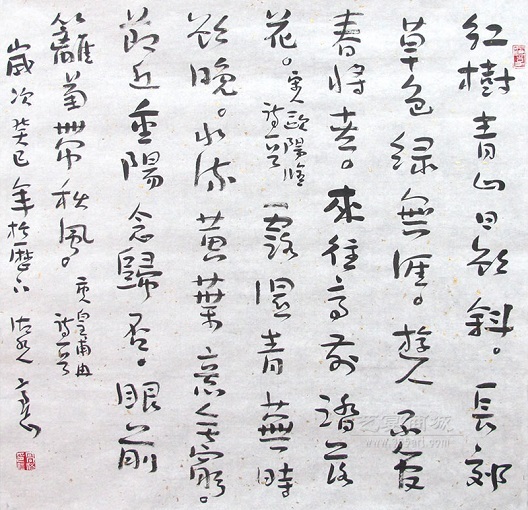 红樹青山日欲斜。長郊
草色緑無涯。遊人不管
春將老。來往亭前踏落
花。录歐陽修詩一首 露濕青蕪時
欲晚。水流黄葉意無窮。
節近重陽念歸否。眼前
籬菊帶秋風。录皇甫冉詩一首
歲次癸巳年於歷下